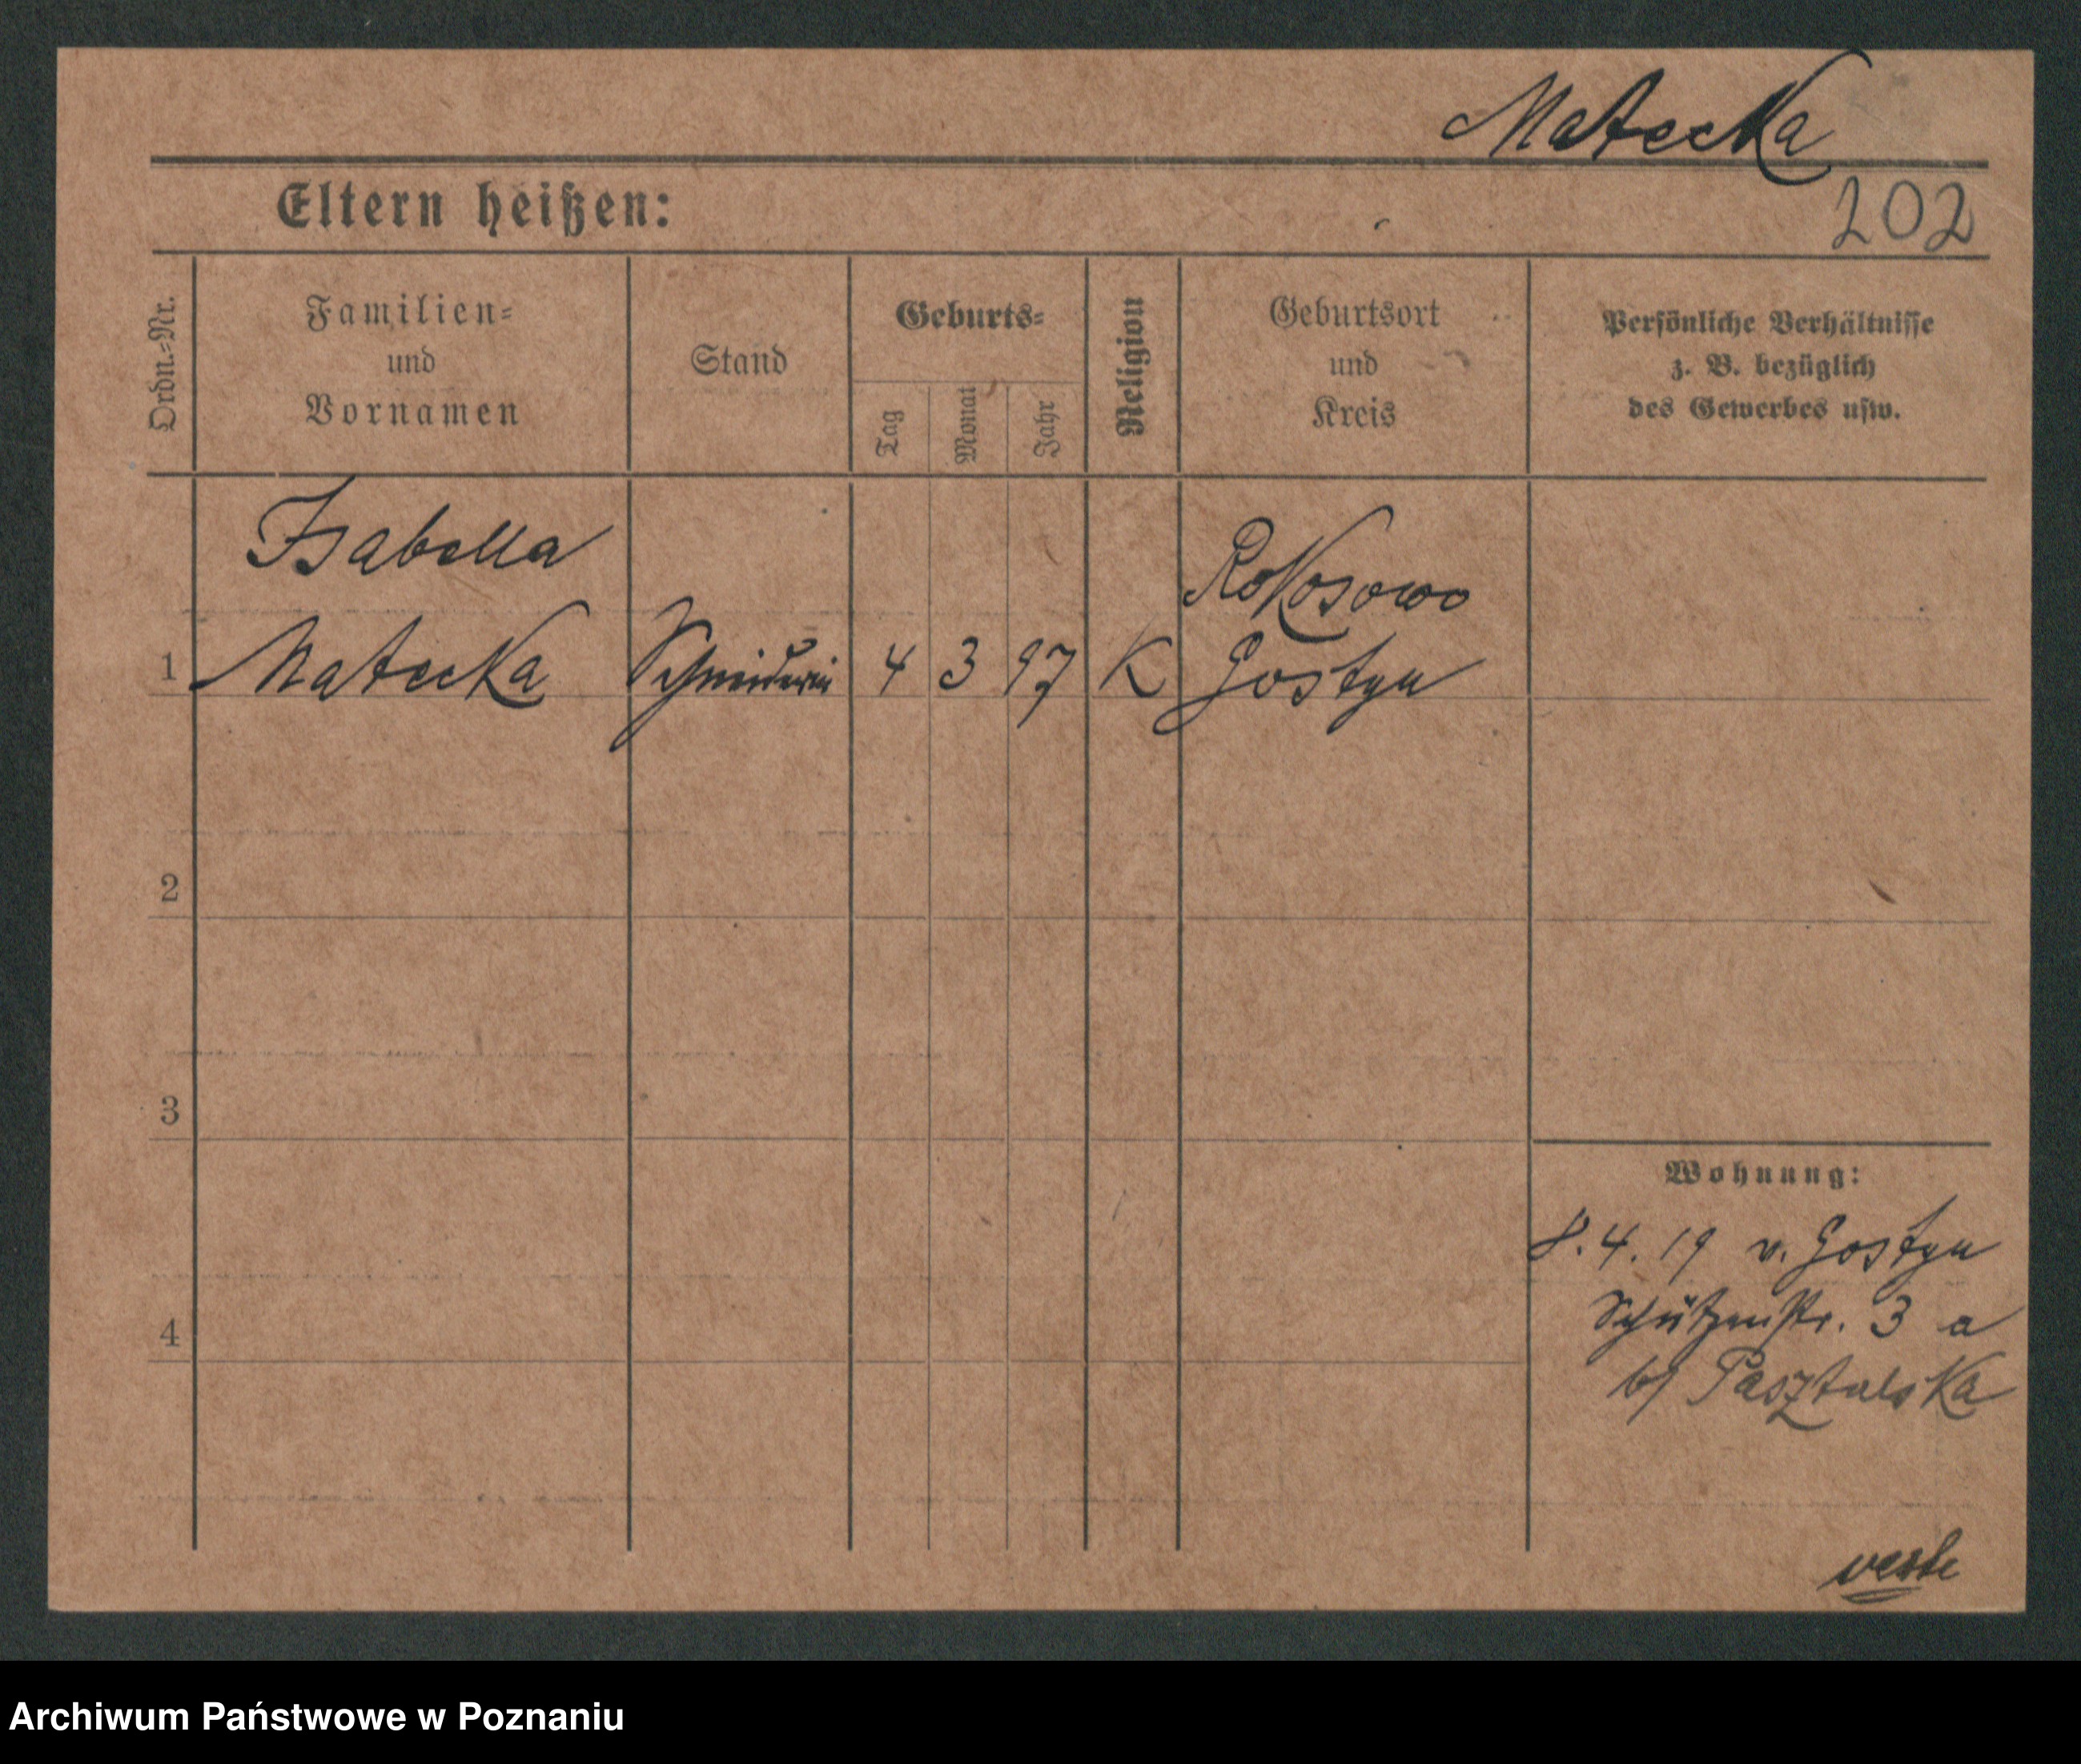 Matecka
202
Eltern heißen:
Ordn.-Nr.
Familien-
und
Vornamen
Stand
Geburts-
Tag
Monat
Jahr
Religion
Geburtsort
und
Kreis
Persönliche Verhältnisse
z. B. bezüglich
des Gewerbes usw.
Isabella
1 Matecka Schneiderin 4 3 97 K Rokosowo
Gostyn
2
3
Wohnung:
8.4.19 v. Gostyn
Schützenstr. 3 a
4
b/ Pasztalska
Archiwum Państwowe w Poznaniu